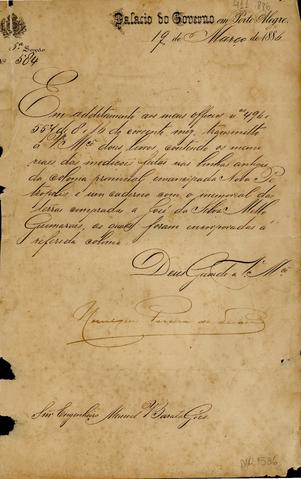 Palacio do Governo em Porto Alegre,
19 de Março de 1886
5ª Secção
Nº 584
Em additamento aos meus officios nºs 496 e
557 de 8 e 16 do corrente mez, transmitto
a V. Mcê dous livros, contendo os memo
riaes das medições feitas nas linhas antigas
da colonia provincial emancipada Nova Pe
tropolis e um caderno com o memorial das
terras compradas a José da Silva Mello
Guimarães, as quaes foram incorporadas á
referida colonia.
Deus Guarde a V. Mcê
Henrique Pereira de
Snr. Engenheiro Manoel